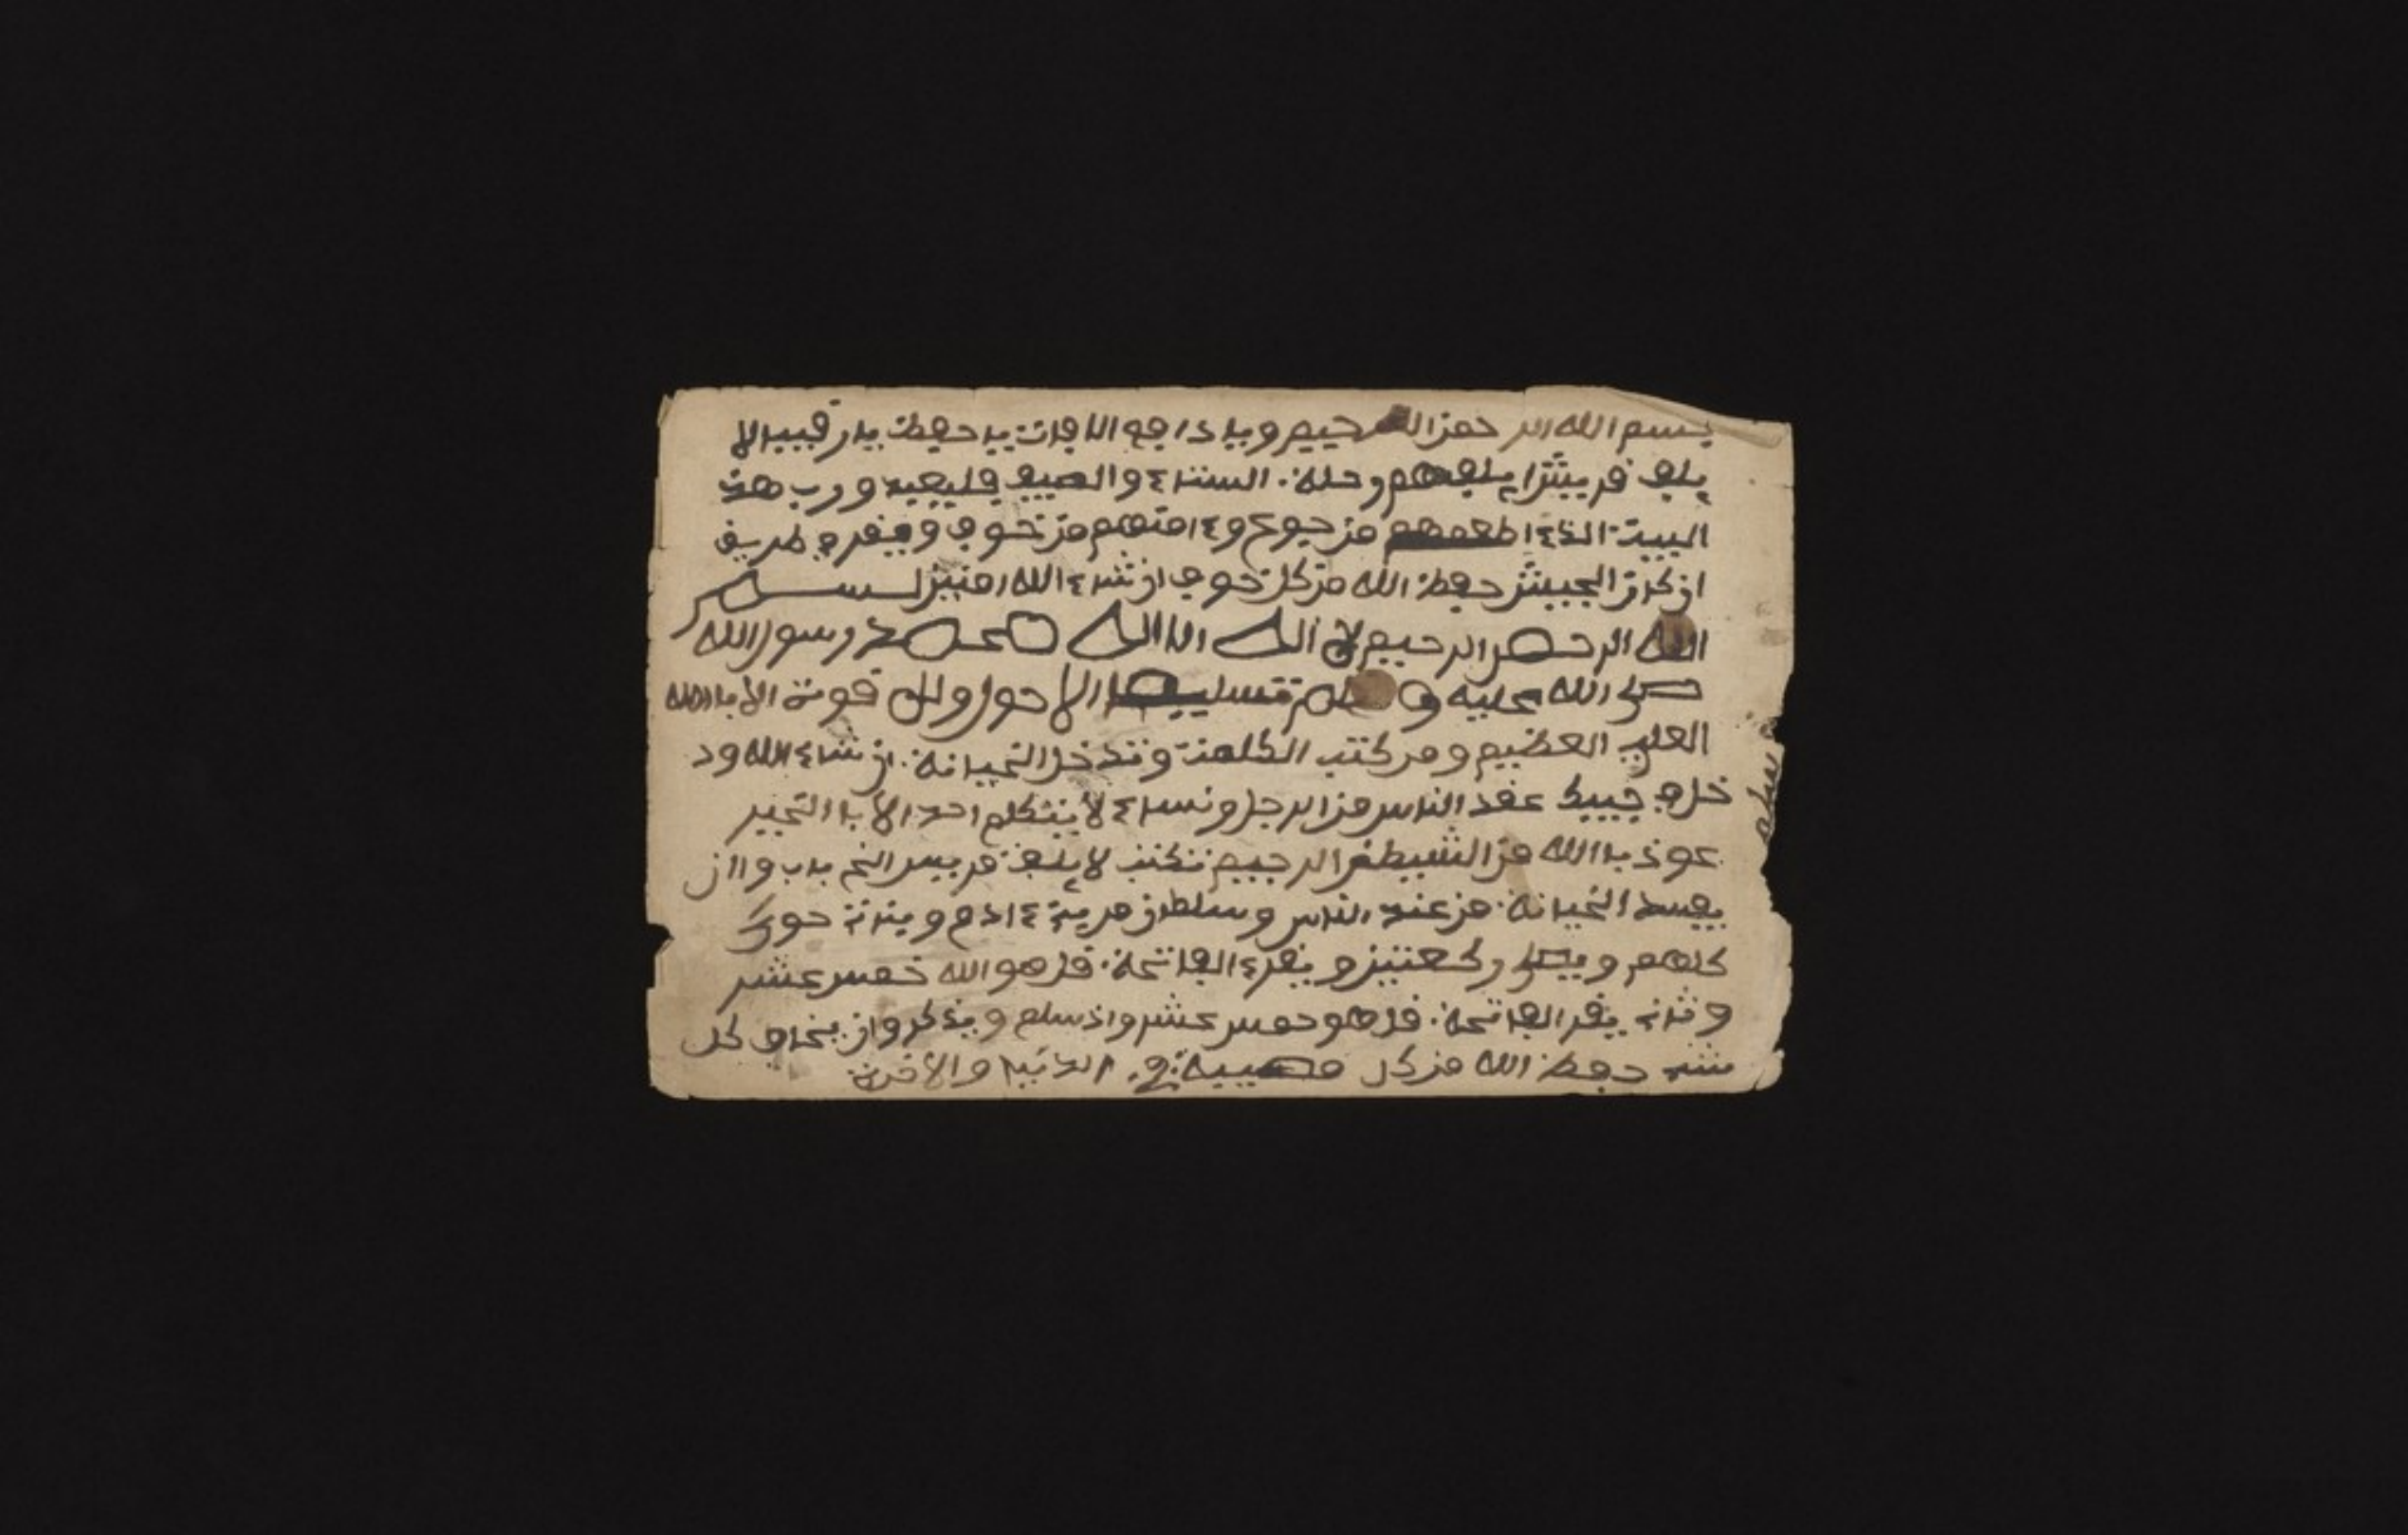 بسم الله الر حمن الرحييم وبيا دارجه الافات يا حفيظ يا رقيب الا
يلف قريش ا يلفهم رحلة الشتاء والصييف فليعبد و رب هذ
البيت الذء اطعمهم من جوع وءامنهم من خوف وييقرء طريف
ان كان الجييش حفظ الله من كل خوف ان شاء الله امنين بسم
الله الرحمن الرحيم لا اله الا الله محمد رسول الله
صلى الله عليه و سلم تسلييما الا حول ولا قوة الا بالله
العلي العظيم و من كتب الكلمة وتدخل الخيانة ان شاء الله ود
خل في جييبك عقد الناس من الرجل ونساء لا يتكلم احد الا با الخير
عوذ با الله من الشيطن الرجييم تكتب لايلف قرييس النجم باب و اان
يفسد الخيانة من عند الناس وسلطان مرية ءادم وبنات حوى
كلهم و يصلى ركعتين و يقرء الفاتحة قل هو الله خمس عشر
و ثانى يقر الفاتحة قل هو خمس عشر واذ سلم و يذكر وان يخاف كل
شيء حفظ الله من كل مصييبة في الدنيا والاخرة